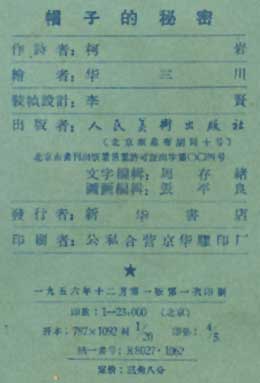 帽子的秘密
作詩者：柯岩
繪者：华三川
裝幀設計：李賢
出版者：人民美術出版社
（北京燈市胡同十号）
北京市書刊出版業營業許可証出字第〇〇四号
文字編輯：周存緒
圖画編輯：張平良
發行者：新华書店
印刷者：公私合营京华印厂
一九五六年十二月第一版第一次印刷
印数：1—23,000（北京）
开本：787×1092 1/20 印張：4/5
統一書号：R8027·1062
定价：三角八分